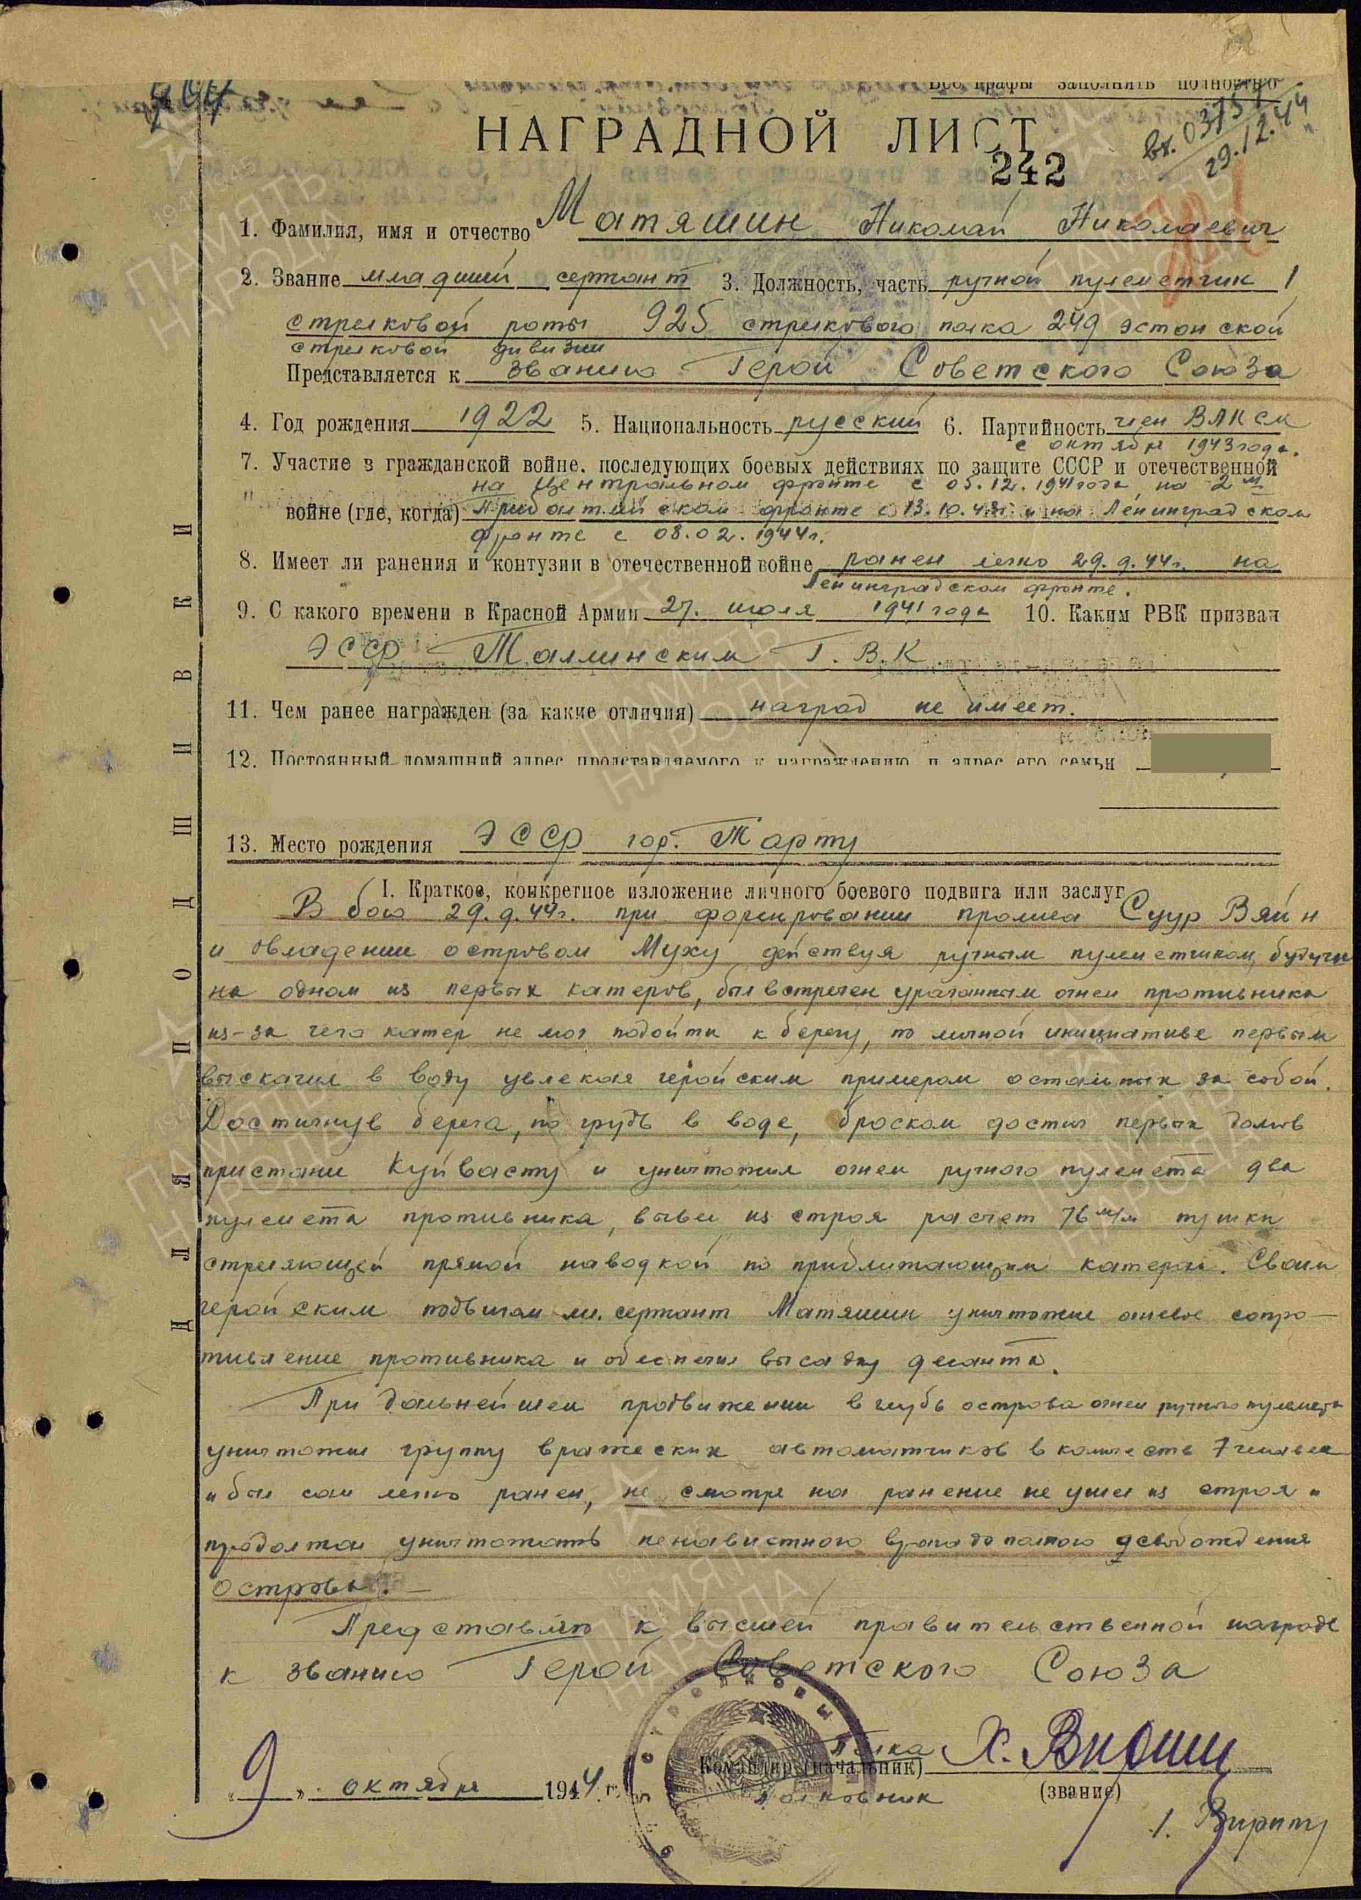 Все графы заполнить полностью
НАГРАДНОЙ ЛИСТ
вх. 03757
29.12.44
242
1. Фамилия, имя и отчество Матяшин Николай Николаевич
2. Звание младший сержант 3. Должность, часть ручной пулеметчик 1
стрелковой роты 925 стрелкового полка 249 эстонской
стрелковой дивизии
Представляется к званию Герой Советского Союза
4. Год рождения 1922 5. Национальность русский 6. Партийность член ВЛКСМ
с октября 1943 года.
7. Участие в гражданской войне, последующих боевых действиях по защите СССР и отечественной
на Центральном фронте с 05.12.1941 года, на 2м
войне (где, когда) Прибалтийском фронте с 13.10.43г и на Ленинградском
фронте с 08.02.1944г.
8. Имеет ли ранения и контузии в отечественной войне ранен легко 29.9.44г. на
Ленинградском фронте.
9. С какого времени в Красной Армии 27. июля 1941 года 10. Каким РВК призван
ЭССР Таллинским Г.В.К.
11. Чем ранее награжден (за какие отличия) наград не имеет.
12. Постоянный домашний адрес представляемого к награждению и адрес его семьи
13. Место рождения ЭССР гор. Тарту
I. Краткое, конкретное изложение личного боевого подвига или заслуг
В бою 29.9.44г. при форсировании пролива Суур Вяйн
и овладении островом Муху действуя ручным пулеметчиком, будучи
на одном из первых катеров, был встречен ураганным огнем противника
из-за чего катер не мог подойти к берегу, по личной инициативе первым
выскочил в воду увлекая геройским примером остальных за собой.
Достигнув берега, по грудь в воде, броском достиг первых домов
пристани Куйвасту и уничтожил огнем ручного пулемета два
пулемета противника, вывел из строя расчет 76 м/м пушки
стреляющей прямой наводкой по приближающим катерам. Своим
геройским подвигом мл. сержант Матяшин уничтожил огневое сопро-
тивление противника и обеспечил высадку десанта.
При дальнейшем продвижении в глубь острова огнем ручного пулемета
уничтожил группу вражеских автоматчиков в количестве 7 человек
и был сам легко ранен, не смотря на ранение не ушел из строя и
продолжал уничтожать ненавистного врага до полного освобождения
острова.
Представляю к высшей правительственной награде
к званию Герой Советского Союза
полка
Командир (начальник) Х. Вирит
"9" октября 1944 г.
полковник (звание)
/. Вирит/
ДЛЯ ПОДШИВКИ
ПАМЯТЬ НАРОДА